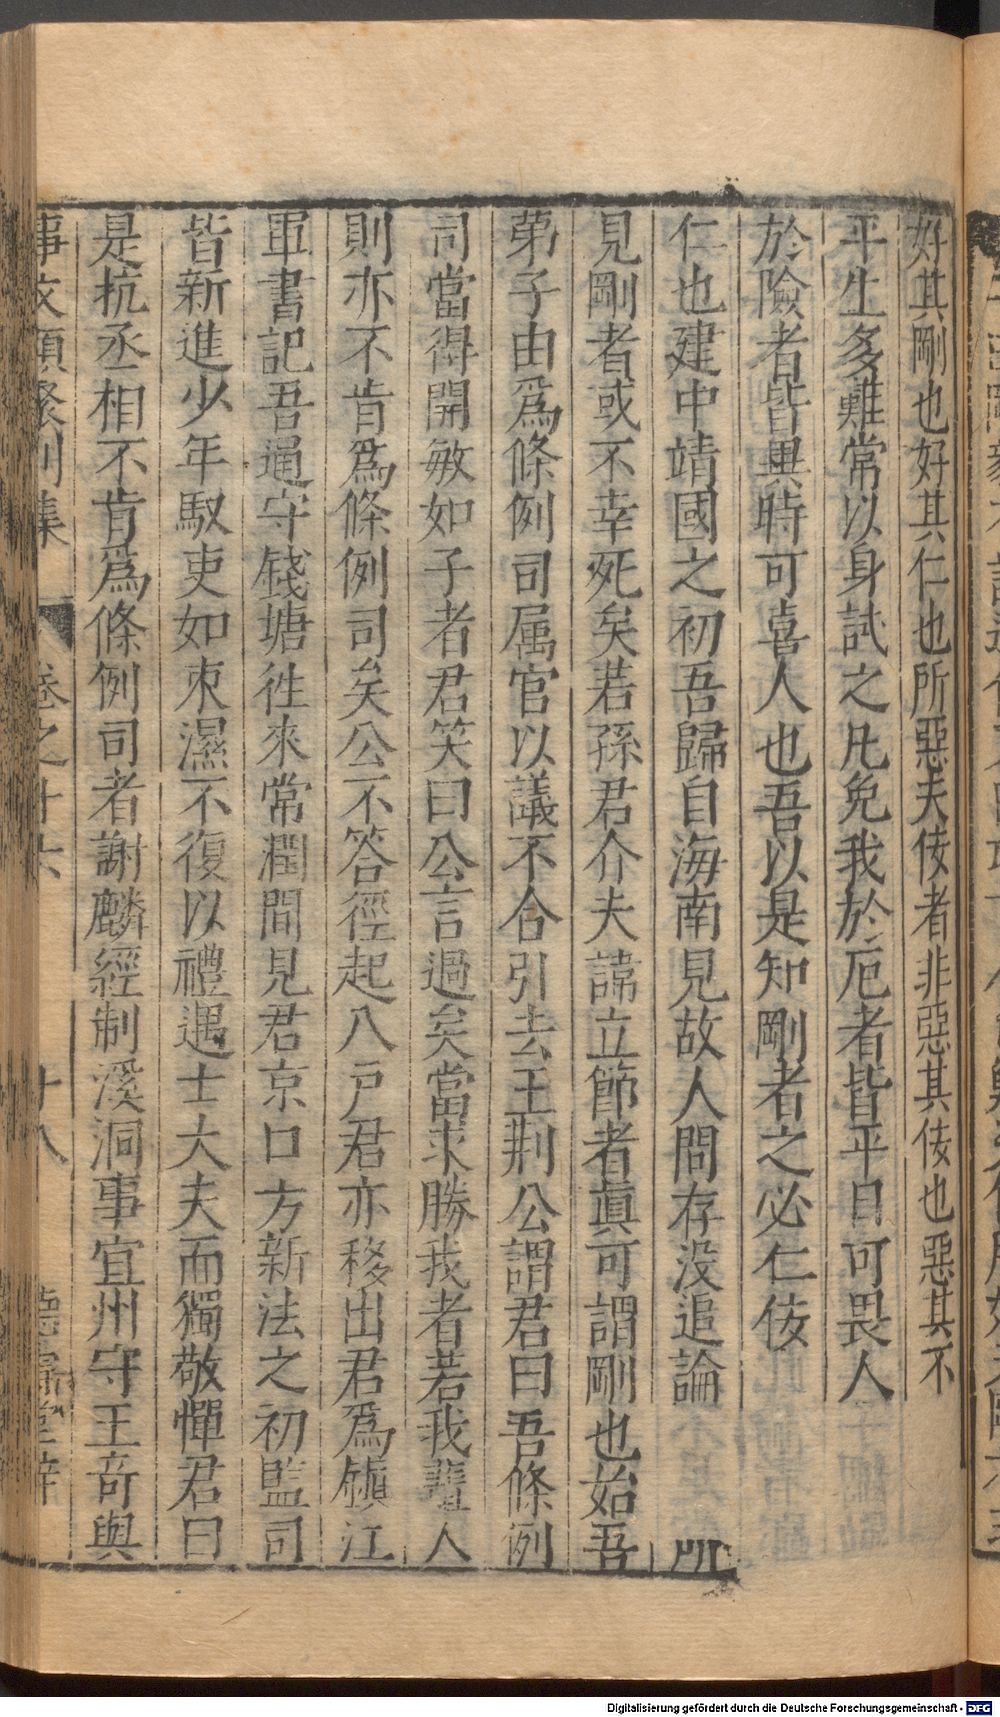 好其剛也好其仁也所惡夫佞者非惡其佞也惡其不
平生多難常以身試之凡免我於厄者皆平日可畏人
於險者皆異時可喜人也吾以是知剛者之必仁佞
仁也建中靖國之初吾歸自海南見故人問存没追論
見剛者或不幸死矣若孫君介夫諱立節者真可謂剛也始吾
弟子由爲條例司属官以議不合引去王荆公謂君曰吾條例
司當得開敏如子者君笑曰公言過矣當求勝我者若我輩人
則亦不肯爲條例司矣公不答徑起入戸君亦移出君爲鎮江
軍書記吾通守錢塘徃來常潤間見君京口方新法之初監司
皆新進少年馭吏如束濕不復以禮遇士大夫而獨敬憚君曰
是抗丞相不肯爲條例司者謝麟經制溪洞事宜州守王奇與
事文類聚別集 卷之十六 十八
Digitalisierung gefördert durch die Deutsche Forschungsgemeinschaft - DFG